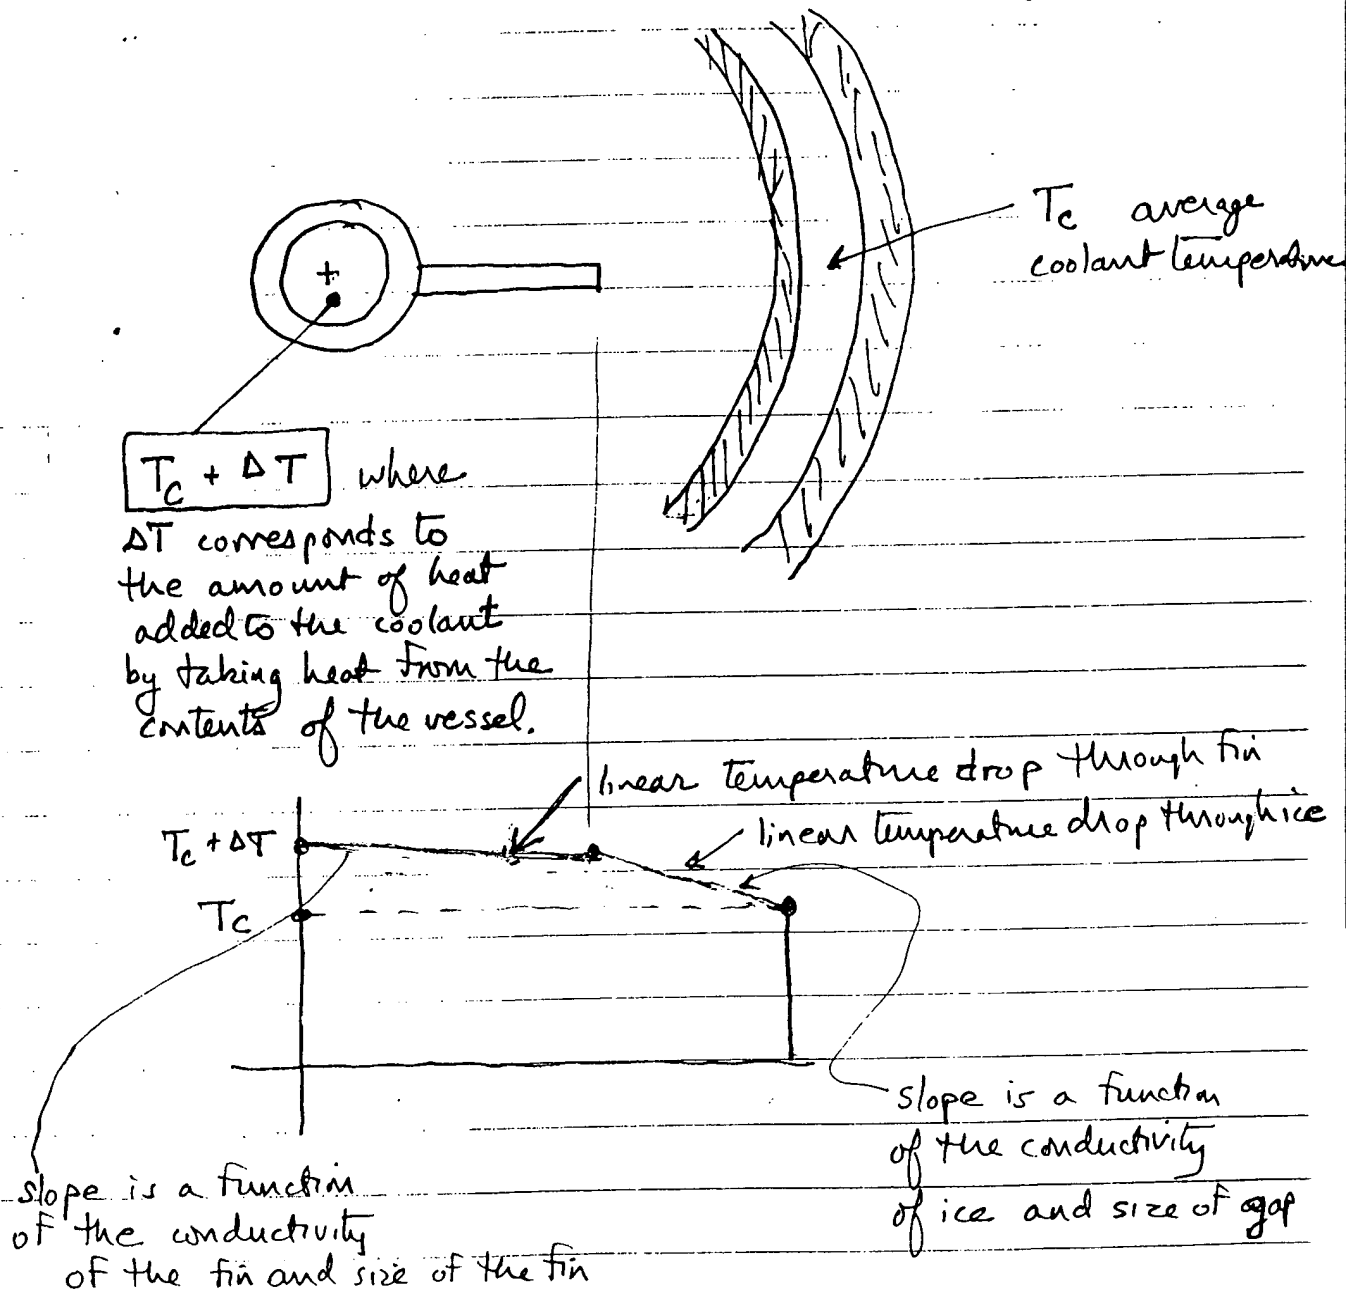 Tc average
coolant temperature
Tc + ΔT where
ΔT corresponds to
the amount of heat
added to the coolant
by taking heat from the
contents of the vessel.
linear temperature drop through fin
linear temperature drop through ice
Tc + ΔT
Tc
slope is a function
of the conductivity
of ice and size of gap
slope is a function
of the conductivity
of the fin and size of the fin